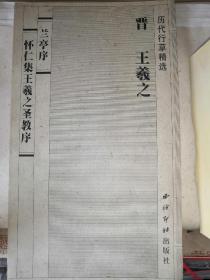 历代行草精选
晋 王羲之
兰亭序
怀仁集王羲之圣教序
西泠印社出版社